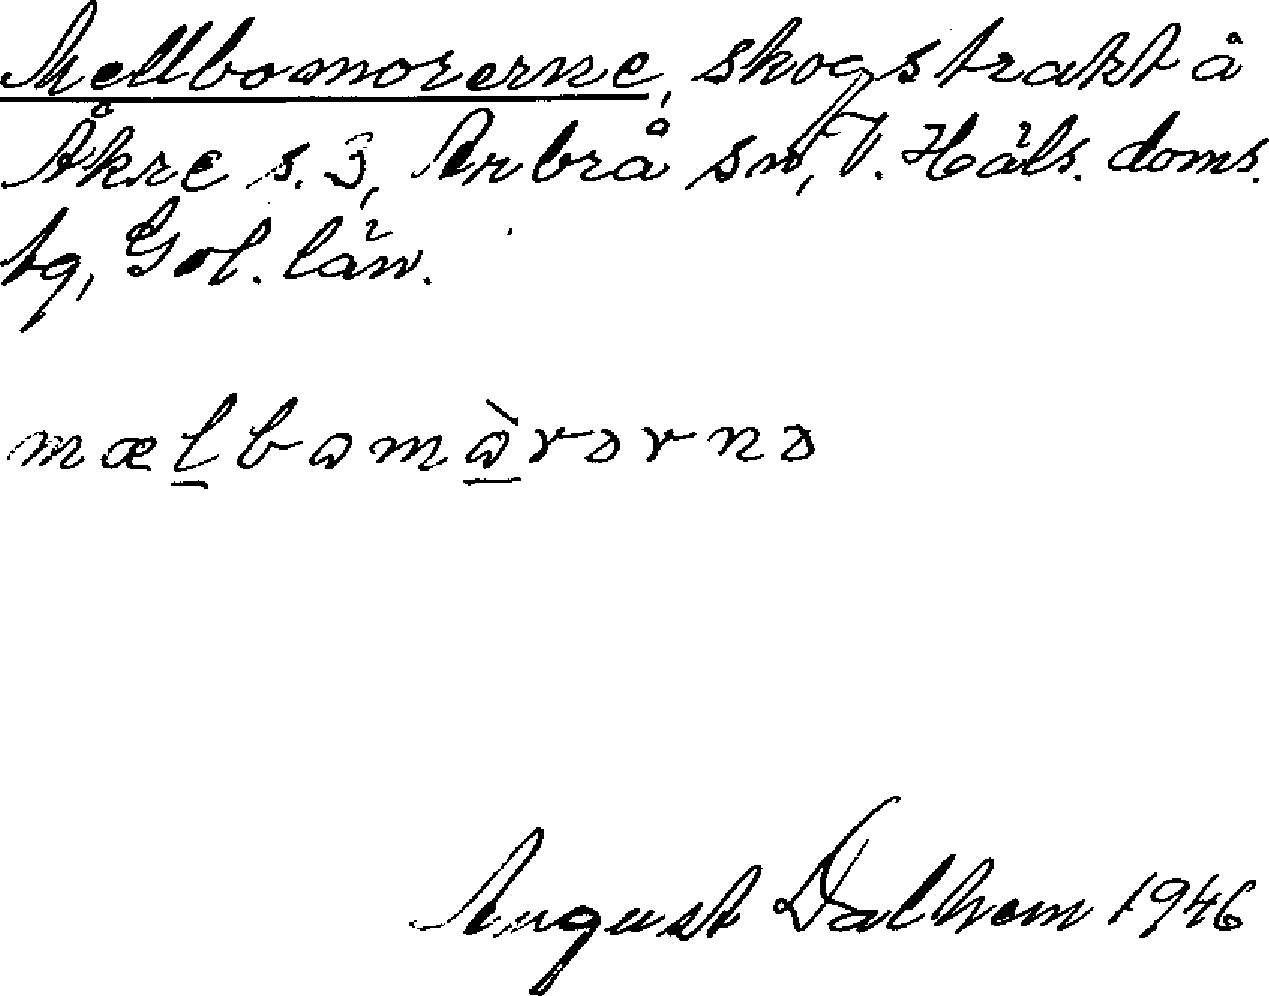 Mellbomorerne, skogstrakt å
Åkre s. 3, Arbrå sn, V. Häls. doms.
tg, Gol. län.
mælbɷmɷ̀rərnə
August Dalhem 1946